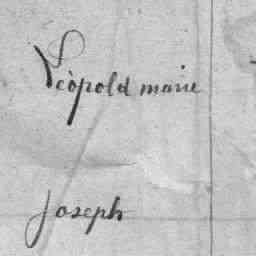 Lèopold marie
Joseph